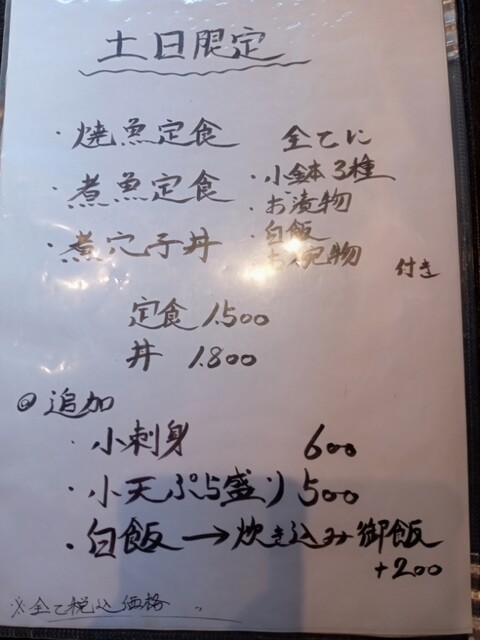 土日限定
・焼魚定食
・煮魚定食
・煮穴子丼
全てに
・小鉢3種
・お漬物
・白飯
・お椀物
付き
定食 1.500
丼 1.800
◎追加
・小刺身 600
・小天ぷら盛り 500
・白飯→炊き込み御飯
+200
※全て税込価格